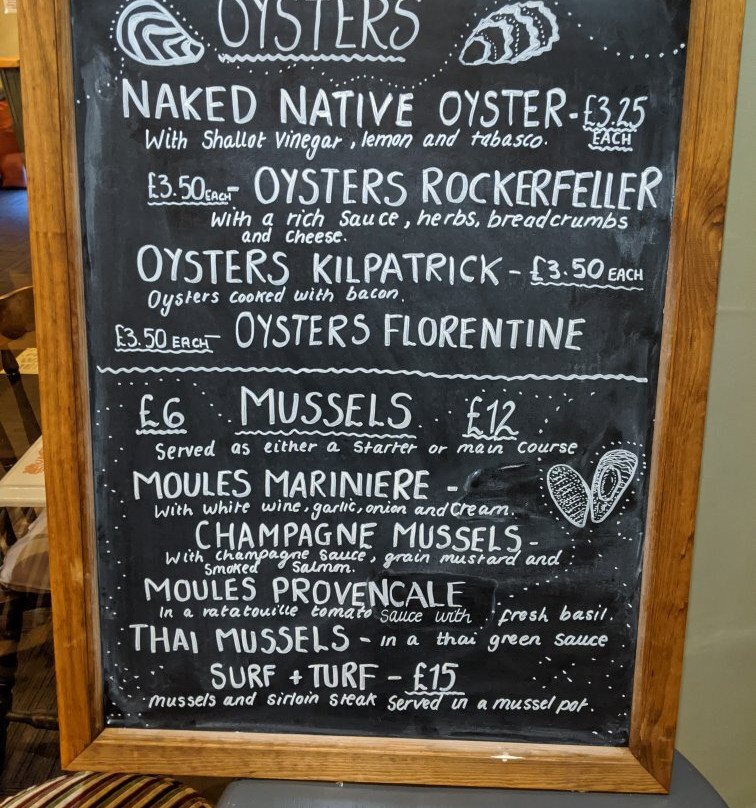 OYSTERS
NAKED NATIVE OYSTER - £3.25 EACH
With Shallot Vinegar, lemon and tabasco.
£3.50 EACH - OYSTERS ROCKERFELLER
With a rich Sauce, herbs, breadcrumbs
and Cheese.
OYSTERS KILPATRICK - £3.50 EACH
Oysters cooked with bacon.
£3.50 EACH - OYSTERS FLORENTINE
£6 MUSSELS £12
Served as either a Starter or main Course
MOULES MARINIERE -
With White wine, garlic, onion and Cream.
CHAMPAGNE MUSSELS -
With champagne sauce, grain mustard and
Smoked Salmon.
MOULES PROVENCALE
In a ratatouille tomato Sauce with fresh basil.
THAI MUSSELS - in a thai green sauce
SURF + TURF - £15
mussels and sirloin steak Served in a mussel pot.